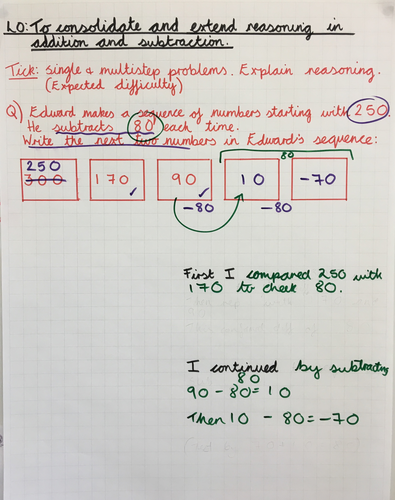 LO: To consolidate and extend reasoning in
addition and subtraction.
Tick: single & multistep problems. Explain reasoning.
(Expected difficulty)
Q) Edward makes a sequence of numbers starting with 250.
He subtracts 80 each time.
Write the next two numbers in Edward's sequence:
80
250
300 170 90 10 -70
-80 -80
First I compared 250 with
170 to check 80.
I continued by subtracting
80
90 - 80 = 10
Then 10 - 80 = -70